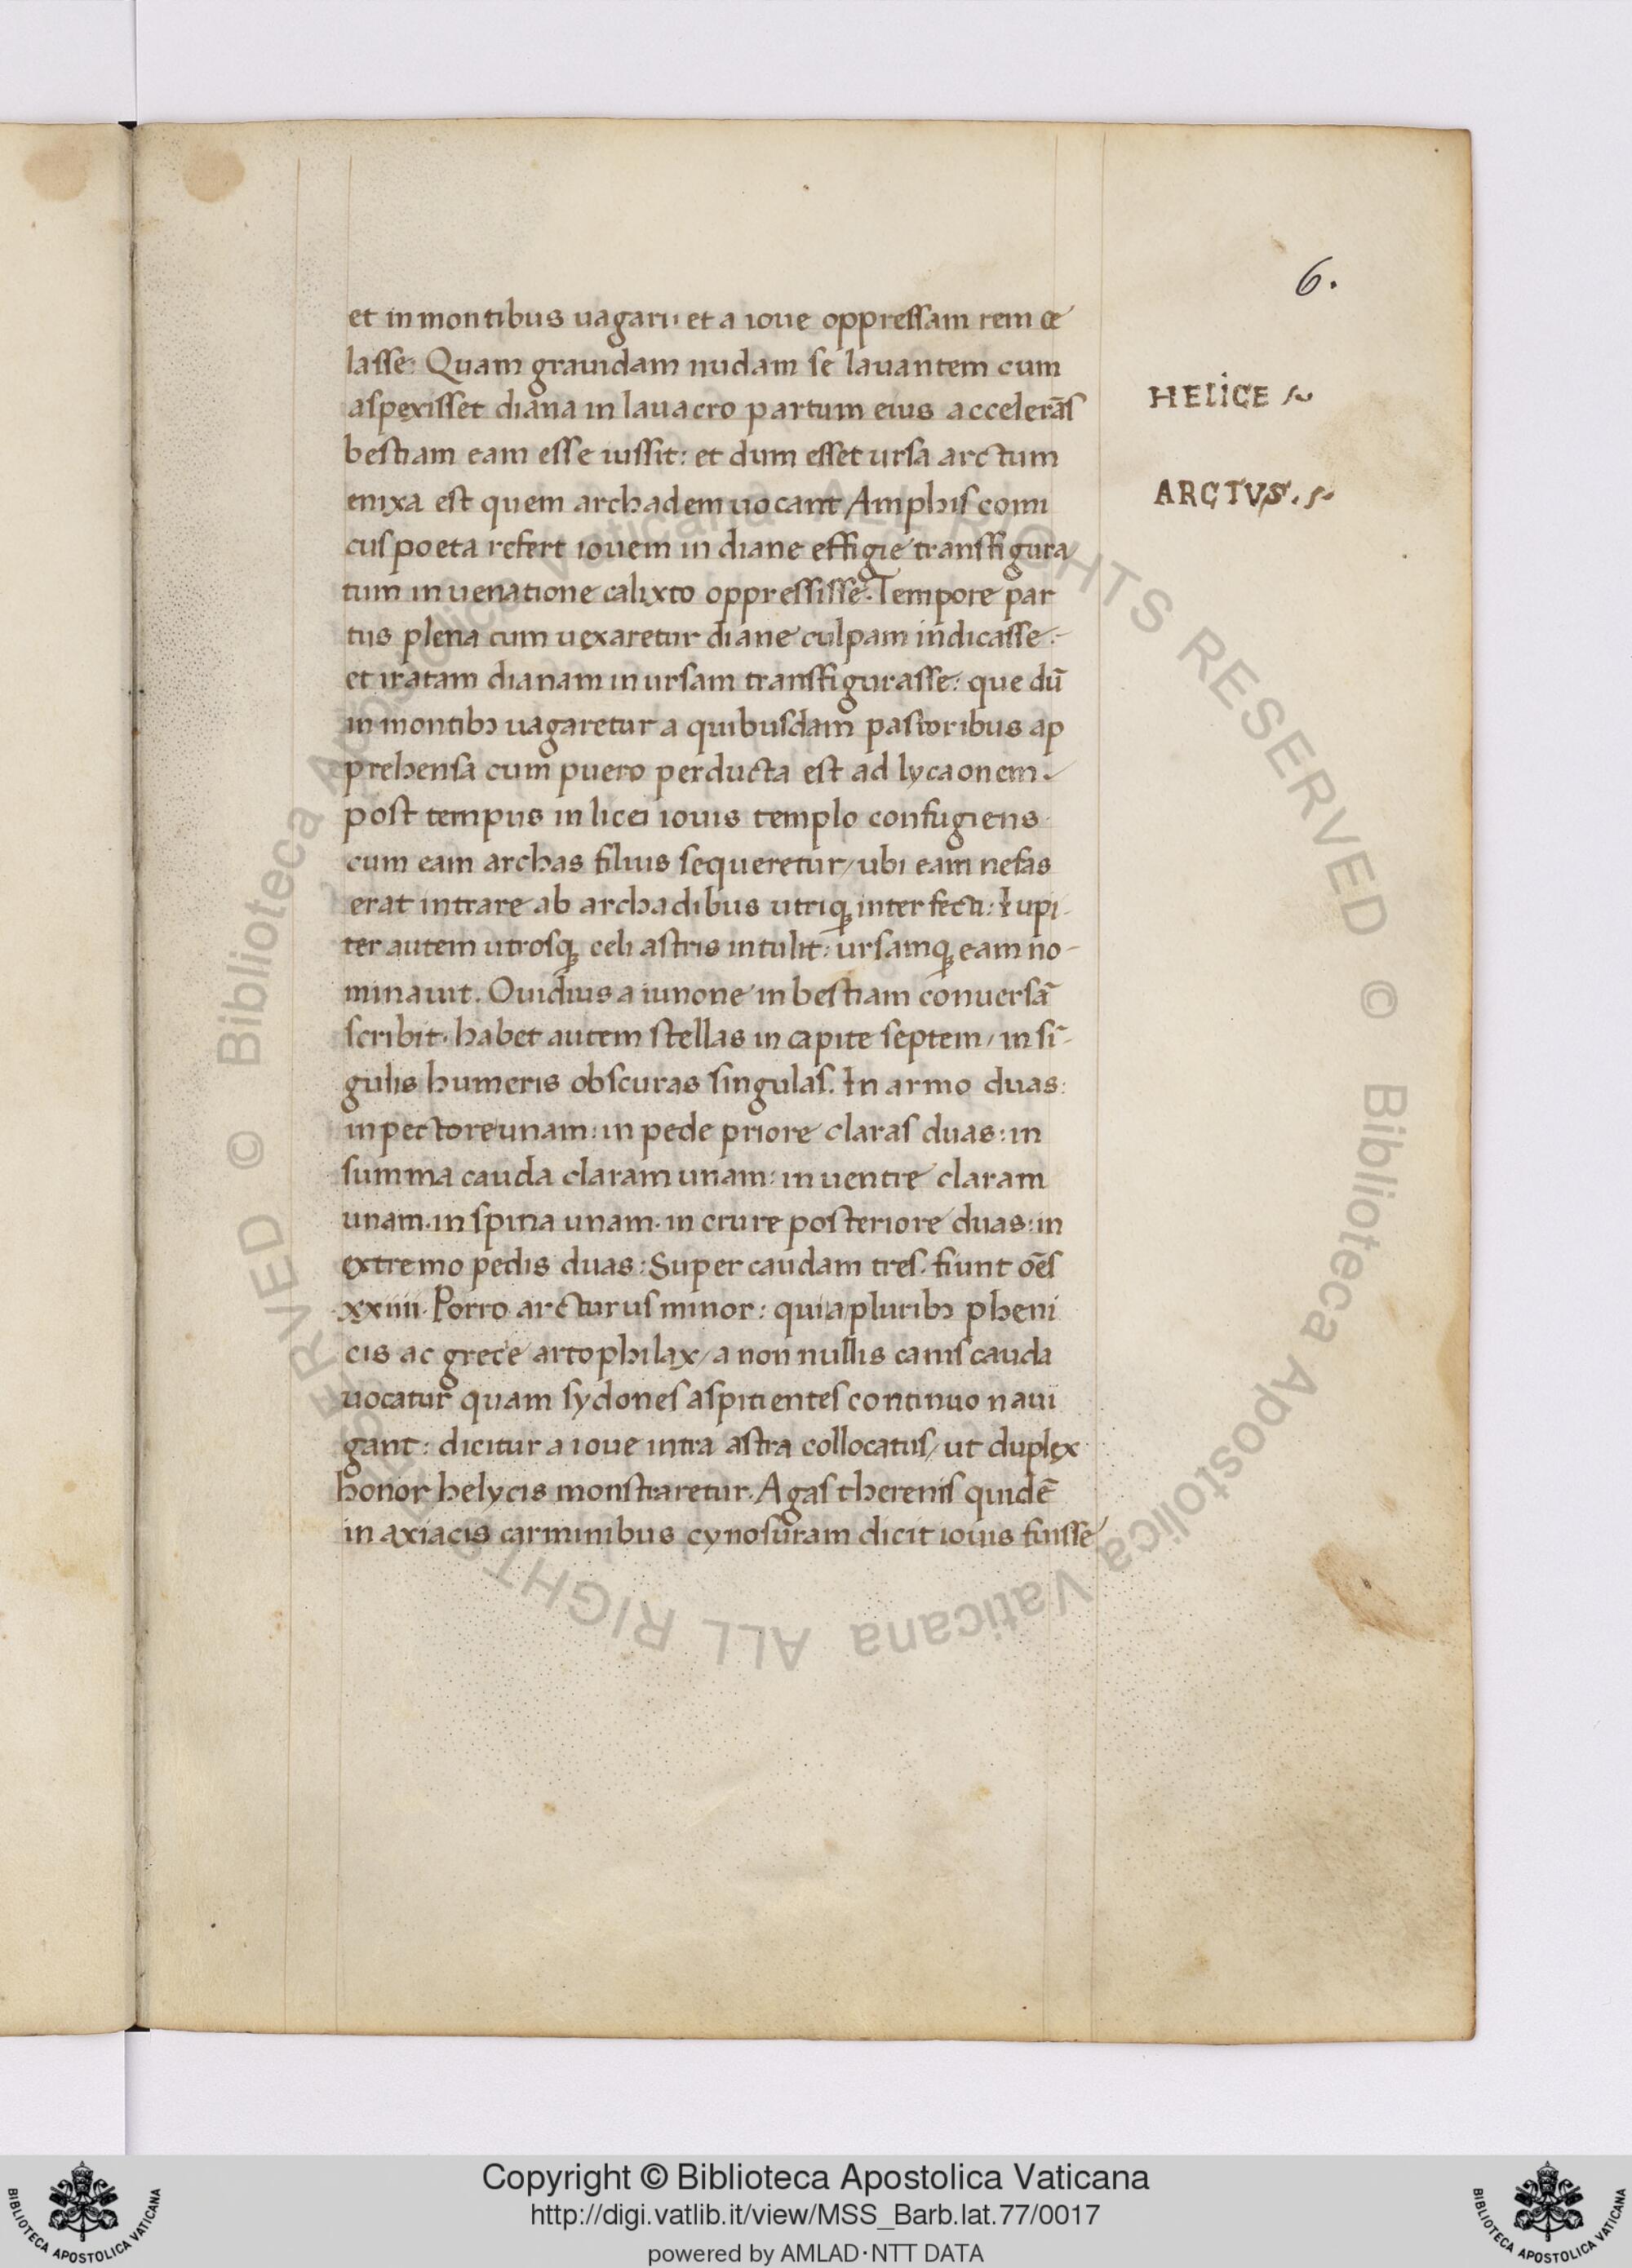 6.
et in montibus uagari: et a ioue oppressam rem ce
lasse: Quam grauidam nudam se lauantem cum
aspexisset diana in lauacro partum eius accelerãs
HELICE
bestiam eam esse iussit: et dum esset ursa arctum
enixa est quem archadem uocant Amphis comi
ARCTVS.
cus poeta refert iouem in diane effigie transfigura
tum in uenatione calixto oppressisse. Tempore par
tus plena cum uexaretur diane culpam indicasse.
et iratam dianam in ursam transfigurasse: que dũ
in montibꝫ uagaretur a quibusdam pastoribus ap
prehensa cum puero perducta est ad lycaonem.
post tempus in licei iouis templo confugiens
cum eam archas filius sequeretur/ ubi eam nefas
erat intrare ab archadibus utriqꝫ interfecti: Iupi
ter autem utrosqꝫ celi astris intulit: ursamqꝫ eam no-
minauit. Ouidius a iunone in bestiam conuersã
scribit. habet autem stellas in capite septem/ in sĩ-
gulis humeris obscuras singulas. In armo duas:
in pectore unam: in pede priore claras duas: in
summa cauda claram unam: in uentre claram
unam. in spina unam. in crure posteriore duas: in
extremo pedis duas: Super caudam tres. fiunt oẽs
xxiiii. Porro arcturus minor: quia pluribꝫ pheni
cis ac grece artophilax/ a non nullis canis cauda
uocatur quam sydones aspitientes continuo naui
gant: dicitur a ioue intra astra collocatus/ ut duplex
honor helycis monstraretur. Agastherenis quidẽ
in axiacis carminibus cynosuram dicit iouis fuisse
© Biblioteca Apostolica Vaticana ALL RIGHTS RESERVED © Biblioteca Apostolica Vaticana ALL RIGHTS RESERVED
BIBLIOTECA APOSTOLICA VATICANA
Copyright © Biblioteca Apostolica Vaticana
http://digi.vatlib.it/view/MSS_Barb.lat.77/0017
powered by AMLAD·NTT DATA
BIBLIOTECA APOSTOLICA VATICANA